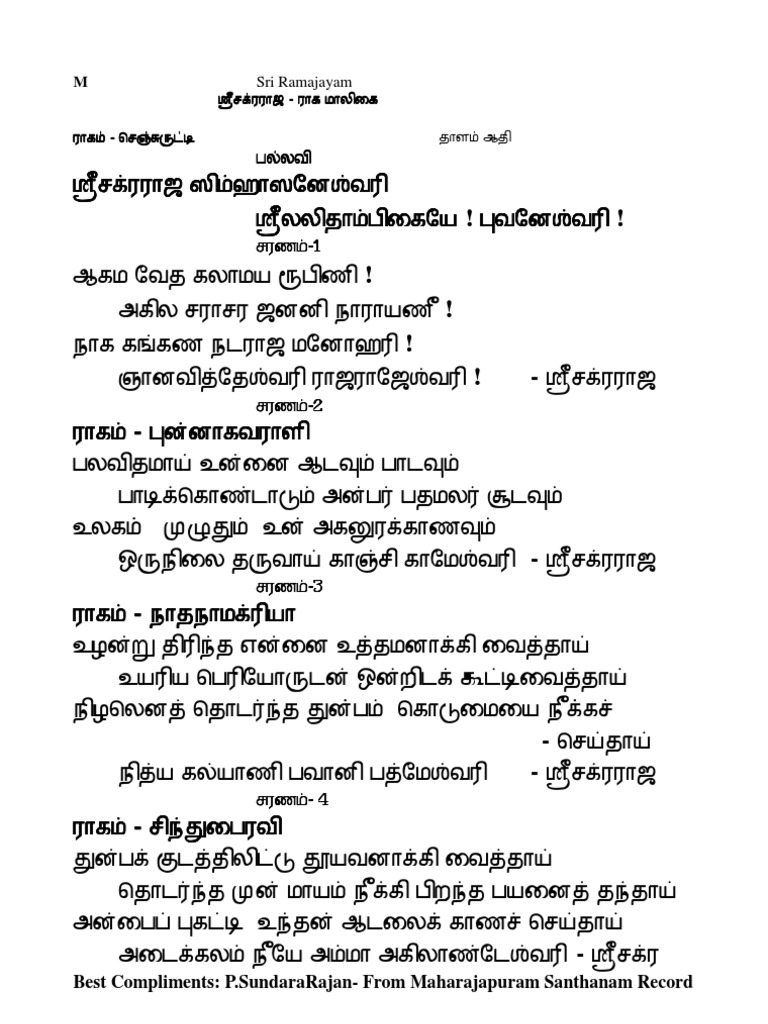 M Sri Ramajayam
ஸ்ரீசக்ரராஜ - ராக மாலிகை
ராகம் - செஞ்சுருட்டி தாளம் ஆதி
பல்லவி
ஸ்ரீசக்ரராஜ ஸிம்ஹாஸனேஶ்வரி
ஸ்ரீலலிதாம்பிகையே ! புவனேஶ்வரி !
சரணம்-1
ஆகம வேத கலாமய ரூபிணி !
அகில சராசர ஜனனி நாராயணீ !
நாக கங்கண நடராஜ மனோஹரி !
ஞானவித்தேஶ்வரி ராஜராஜேஶ்வரி ! - ஸ்ரீசக்ரராஜ
சரணம்-2
ராகம் - புன்னாகவராளி
பலவிதமாய் உன்னை ஆடவும் பாடவும்
பாடிக்கொண்டாடும் அன்பர் பதமலர் சூடவும்
உலகம் முழுதும் உன் அகனுரக்காணவும்
ஒருநிலை தருவாய் காஞ்சி காமேஶ்வரி - ஸ்ரீசக்ரராஜ
சரணம்-3
ராகம் - நாதநாமக்ரியா
உழன்று திரிந்த என்னை உத்தமனாக்கி வைத்தாய்
உயரிய பெரியோருடன் ஒன்றிடக் கூட்டிவைத்தாய்
நிழலெனத் தொடர்ந்த துன்பம் கொடுமையை நீக்கச்
- செய்தாய்
நித்ய கல்யாணி பவானி பத்மேஶ்வரி - ஸ்ரீசக்ரராஜ
சரணம்- 4
ராகம் - சிந்துபைரவி
துன்பக் குடத்திலிட்டு தூயவனாக்கி வைத்தாய்
தொடர்ந்த முன் மாயம் நீக்கி பிறந்த பயனைத் தந்தாய்
அன்பைப் புகட்டி உந்தன் ஆடலைக் காணச் செய்தாய்
அடைக்கலம் நீயே அம்மா அகிலாண்டேஶ்வரி - ஸ்ரீசக்ர
Best Compliments: P.SundaraRajan- From Maharajapuram Santhanam Record